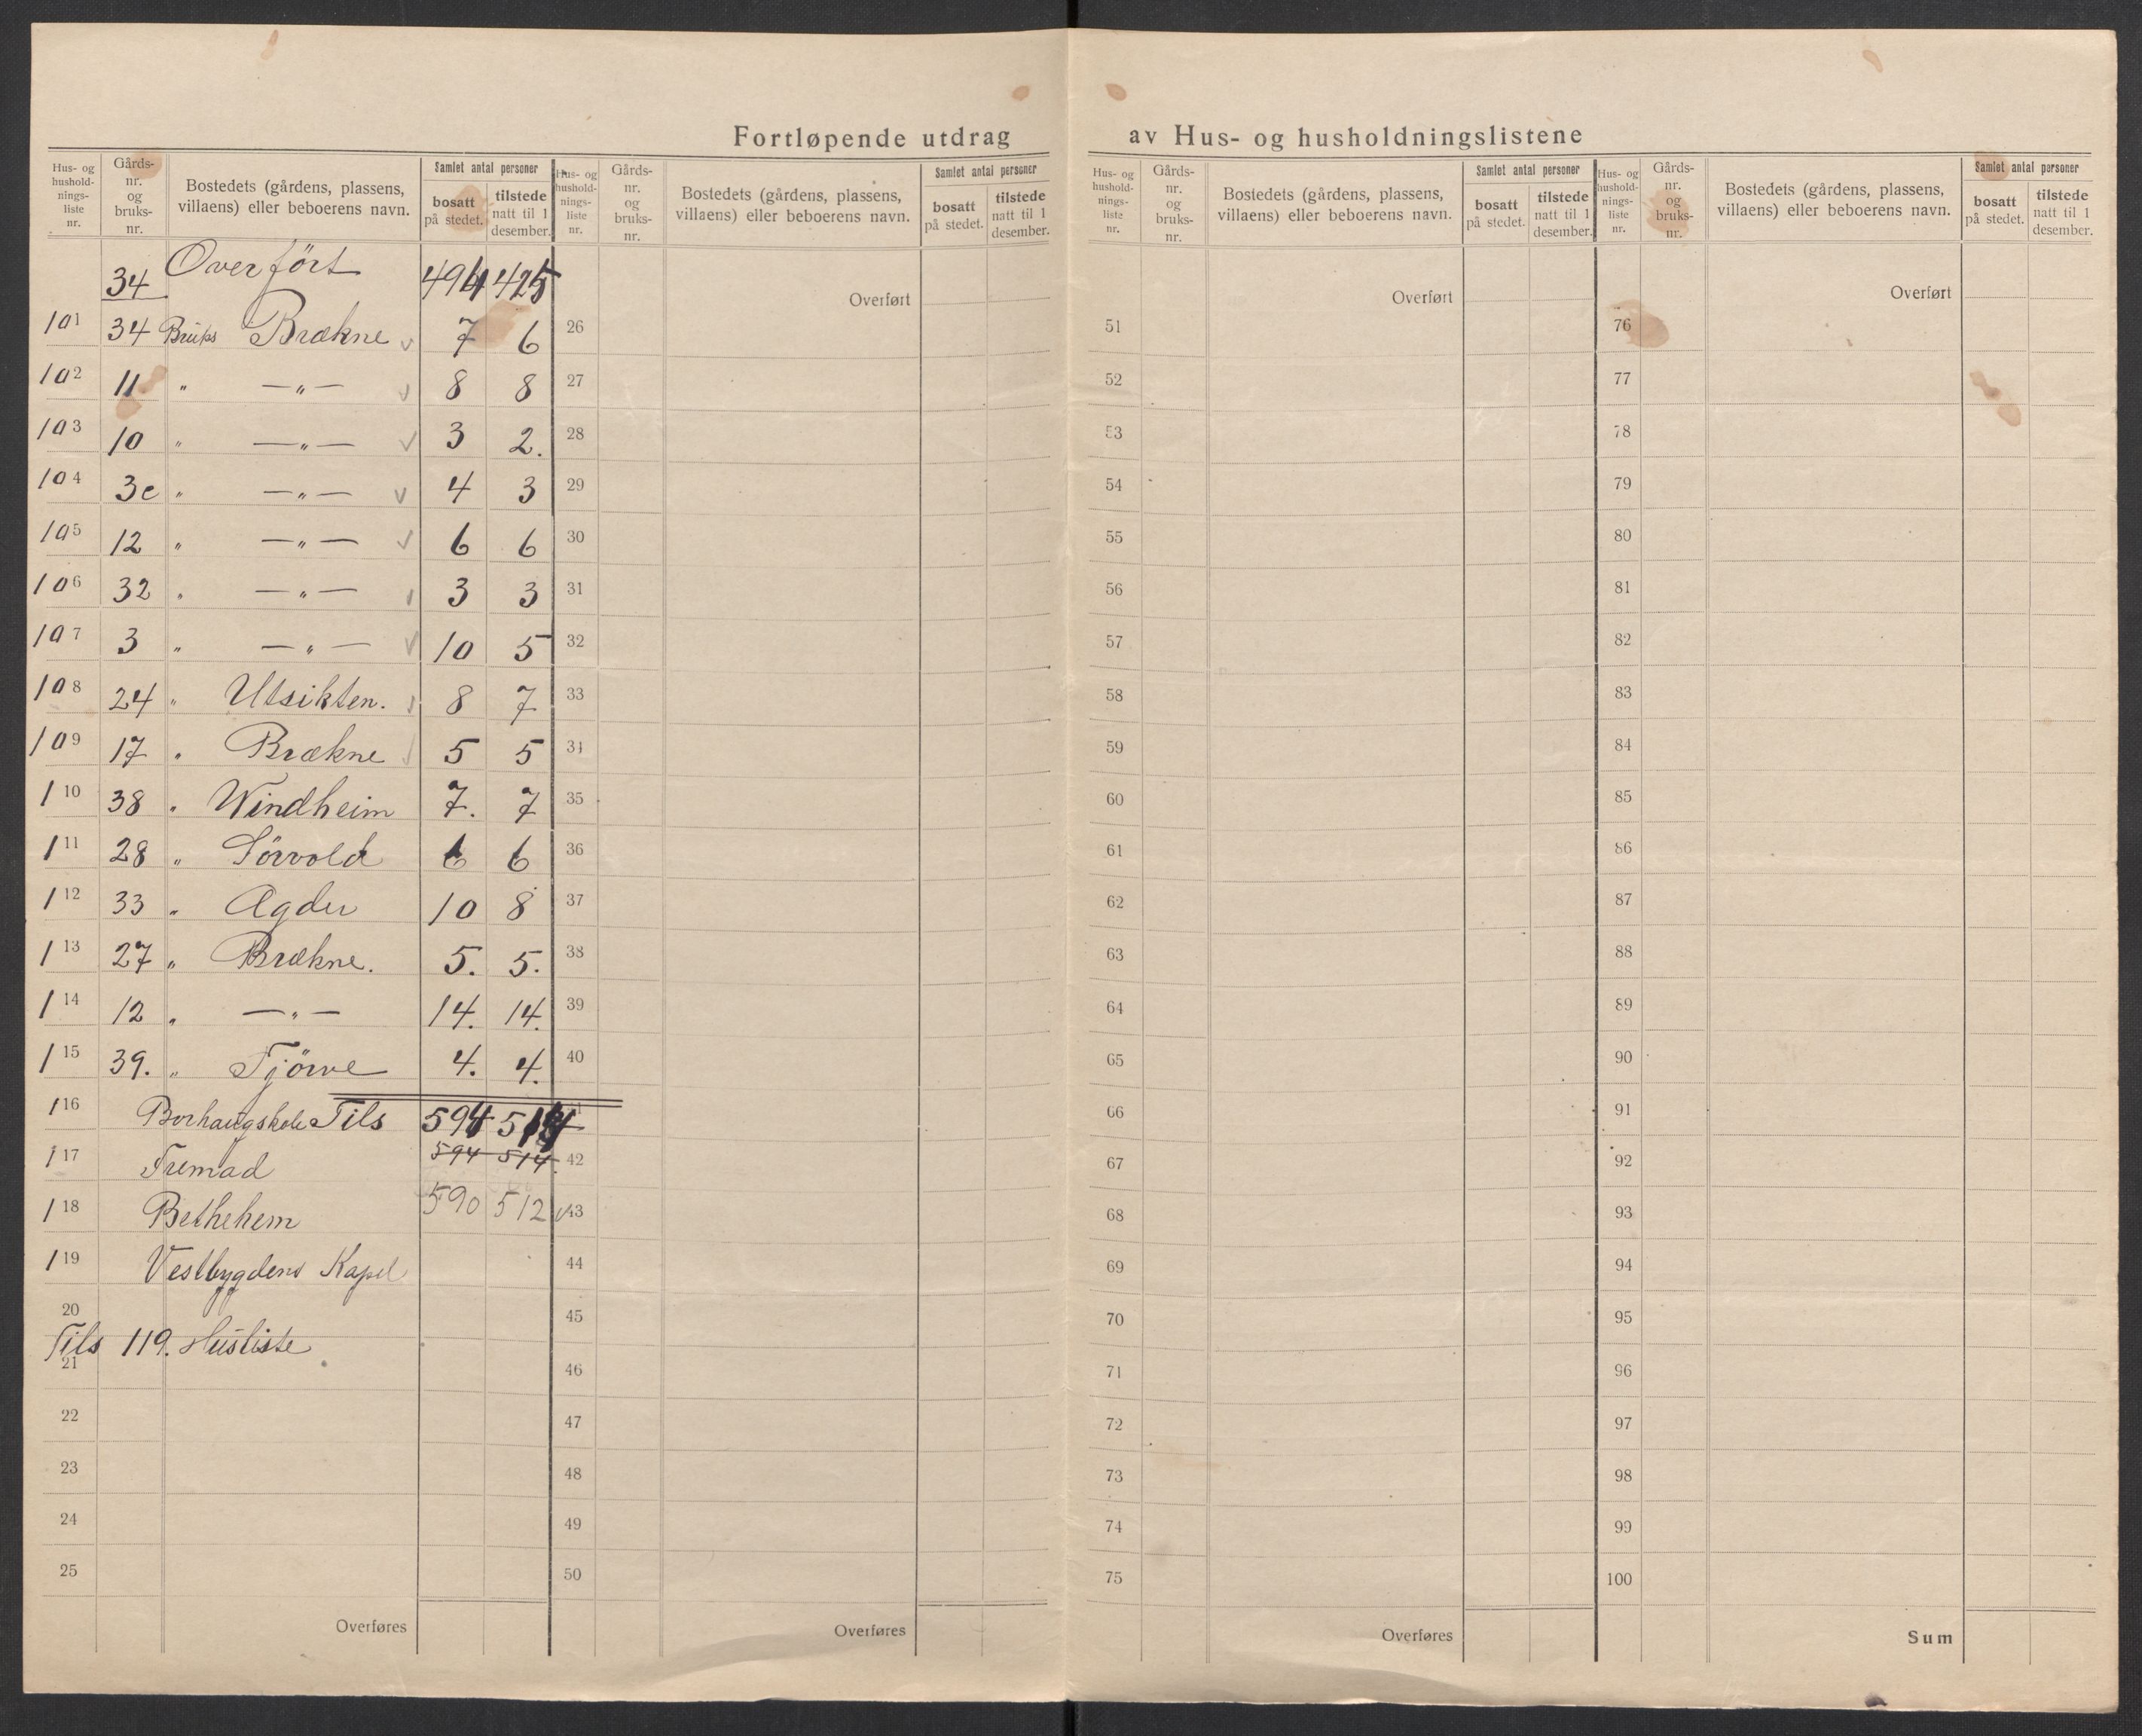 Fortløpende utdrag av Hus- og husholdningslistene
Hus- og husholdningsliste nr. | Gårds-nr. og bruks-nr. | Bostedets (gårdens, plassens, villaens) eller beboerens navn. | Samlet antal personer | bosatt på stedet. | tilstede natt til 1 desember.
34 Overført 494 425
101 34 Bruks Brækne 7 6
102 11 " —"— 8 8
103 10 " —"— 3 2.
104 3c " —"— 4 3
105 12 " —"— 6 6
106 32 " —"— 3 3
107 3 " —"— 10 5
108 24 " Utsikten. 8 7
109 17 " Brækne 5 5
110 38 " Windheim 7. 7
111 28 " Sørvold 6 6
112 33 " Agder 10 8
113 27 " Brækne. 5. 5.
114 12 " —"— 14. 14.
115 39. " Tjörve 4. 4.
116 Borhaugskole Tils 594
117 Fremad 594 514
118 Bethehem 590 512
119 Vestbygdens Kapel
20
Tils 119. Husliste
21
22
23
24
25
Overføres
Hus- og husholdningsliste nr. | Gårds-nr. og bruks-nr. | Bostedets (gårdens, plassens, villaens) eller beboerens navn. | Samlet antal personer | bosatt på stedet. | tilstede natt til 1 desember.
Overført
26
27
28
29
30
31
32
33
34
35
36
37
38
39
40
42
43
44
45
46
47
48
49
50
Overføres
Hus- og husholdningsliste nr. | Gårds-nr. og bruks-nr. | Bostedets (gårdens, plassens, villaens) eller beboerens navn. | Samlet antal personer | bosatt på stedet. | tilstede natt til 1 desember.
Overført
51
52
53
54
55
56
57
58
59
60
61
62
63
64
65
66
67
68
69
70
71
72
73
74
75
Overføres
Hus- og husholdningsliste nr. | Gårds-nr. og bruks-nr. | Bostedets (gårdens, plassens, villaens) eller beboerens navn. | Samlet antal personer | bosatt på stedet. | tilstede natt til 1 desember.
Overført
76
77
78
79
80
81
82
83
84
85
86
87
88
89
90
91
92
93
94
95
96
97
98
99
100
Sum